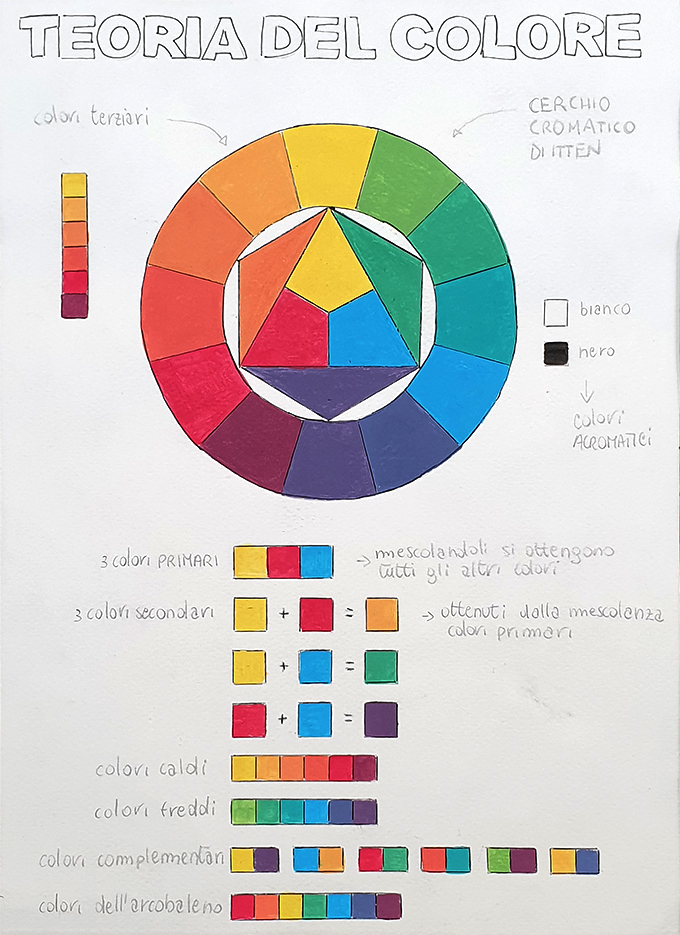 TEORIA DEL COLORE
colori terziari
CERCHIO
CROMATICO
DI ITTEN
bianco
nero
colori
ACROMATICI
3 colori PRIMARI
→ mescolandoli si ottengono
tutti gli altri colori
3 colori secondari
+ =
→ ottenuti dalla mescolanza
colori primari
+ =
+ =
colori caldi
colori freddi
colori complementari
colori dell'arcobaleno